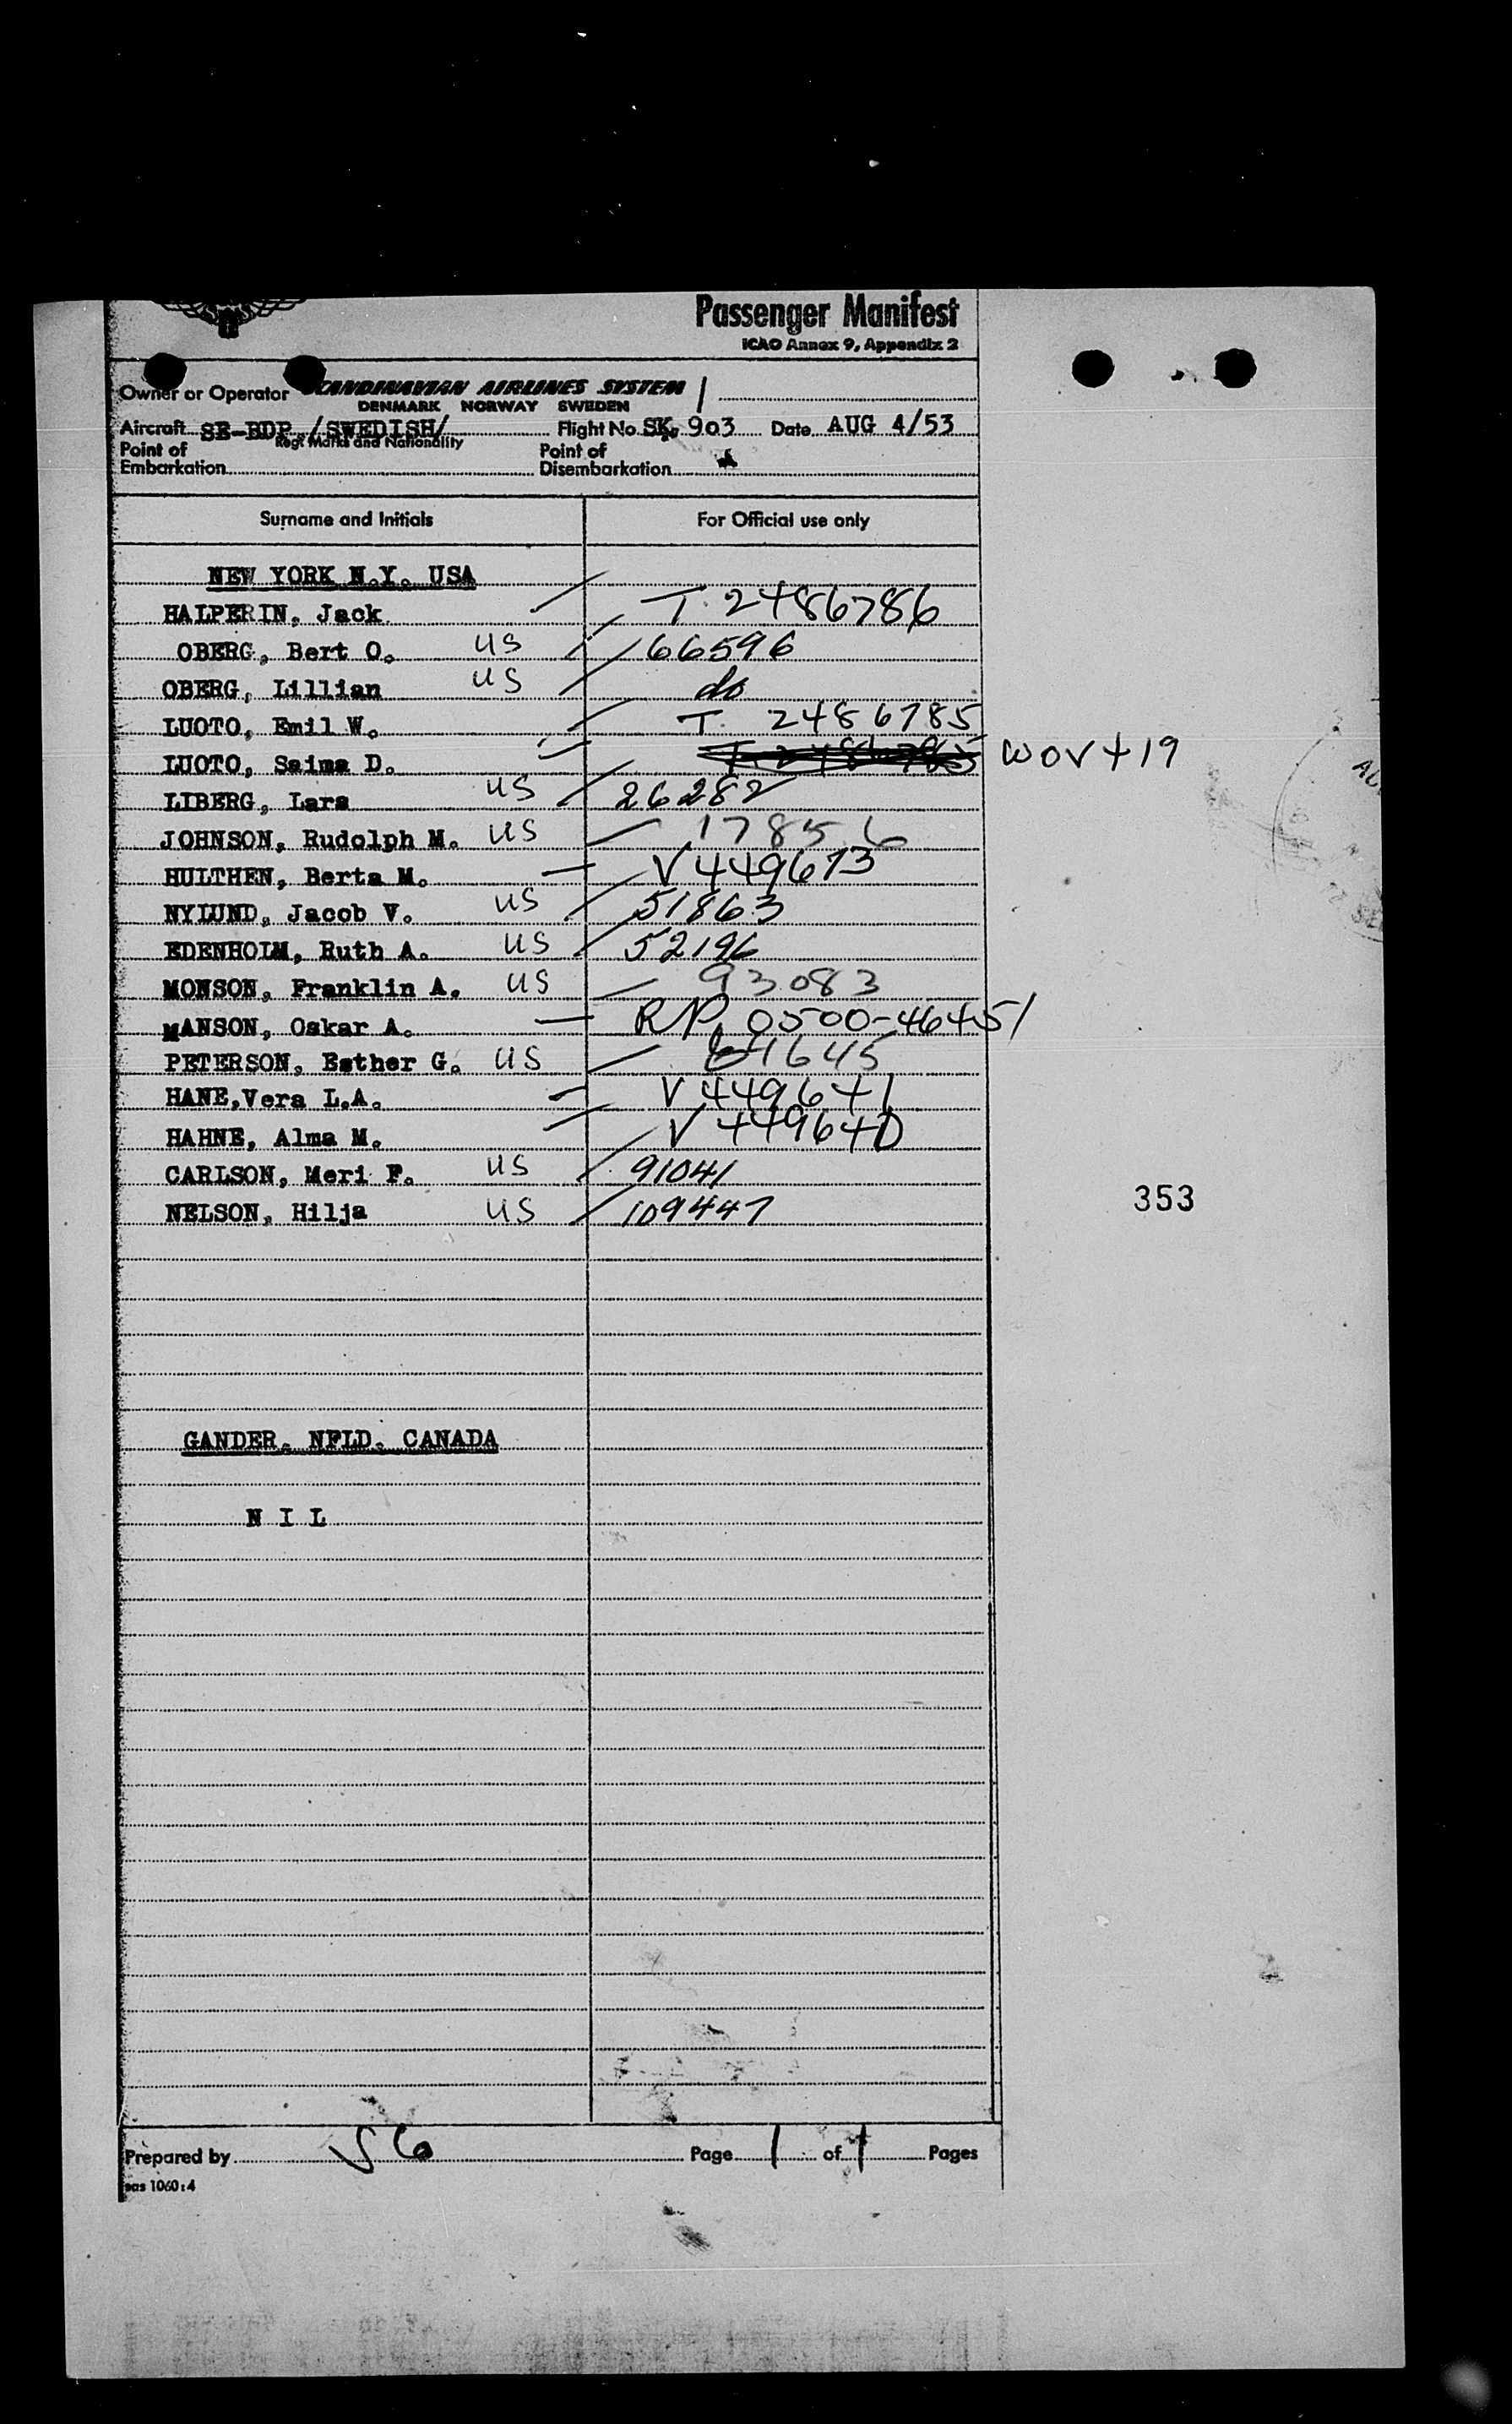 Passenger Manifest
ICAO Annex 9, Appendix 2
Owner or Operator SCANDINAVIAN AIRLINES SYSTEM
DENMARK NORWAY SWEDEN
Aircraft SE-BDP /SWEDISH/ Flight No SK. 903 Date AUG 4/53
Regt Marks and Nationality
Point of Embarkation Point of Disembarkation
Surname and Initials For Official use only
NEW YORK N.Y. USA
HALPERIN, Jack T. 2486786
OBERG, Bert O. US 66596
OBERG, Lillian US do
LUOTO, Emil W. T. 2486785
LUOTO, Saima D. WOV+19
LIBERG, Lars US 26282
JOHNSON, Rudolph M. US 17856
HULTHEN, Berta M. V449673
NYLUND, Jacob V. US 51863
EDENHOLM, Ruth A. US 52196
MONSON, Franklin A. US 93083
MANSON, Oskar A. RP. 0500-46451
PETERSON, Esther G. US 61645
HANE,Vera L.A. V449641
HAHNE, Alma M. V449640
CARLSON, Meri F. US 91041
NELSON, Hilja US 109447
353
GANDER. NFLD. CANADA
N I L
Prepared by Page 1 of 1 Pages
sas 1060:4